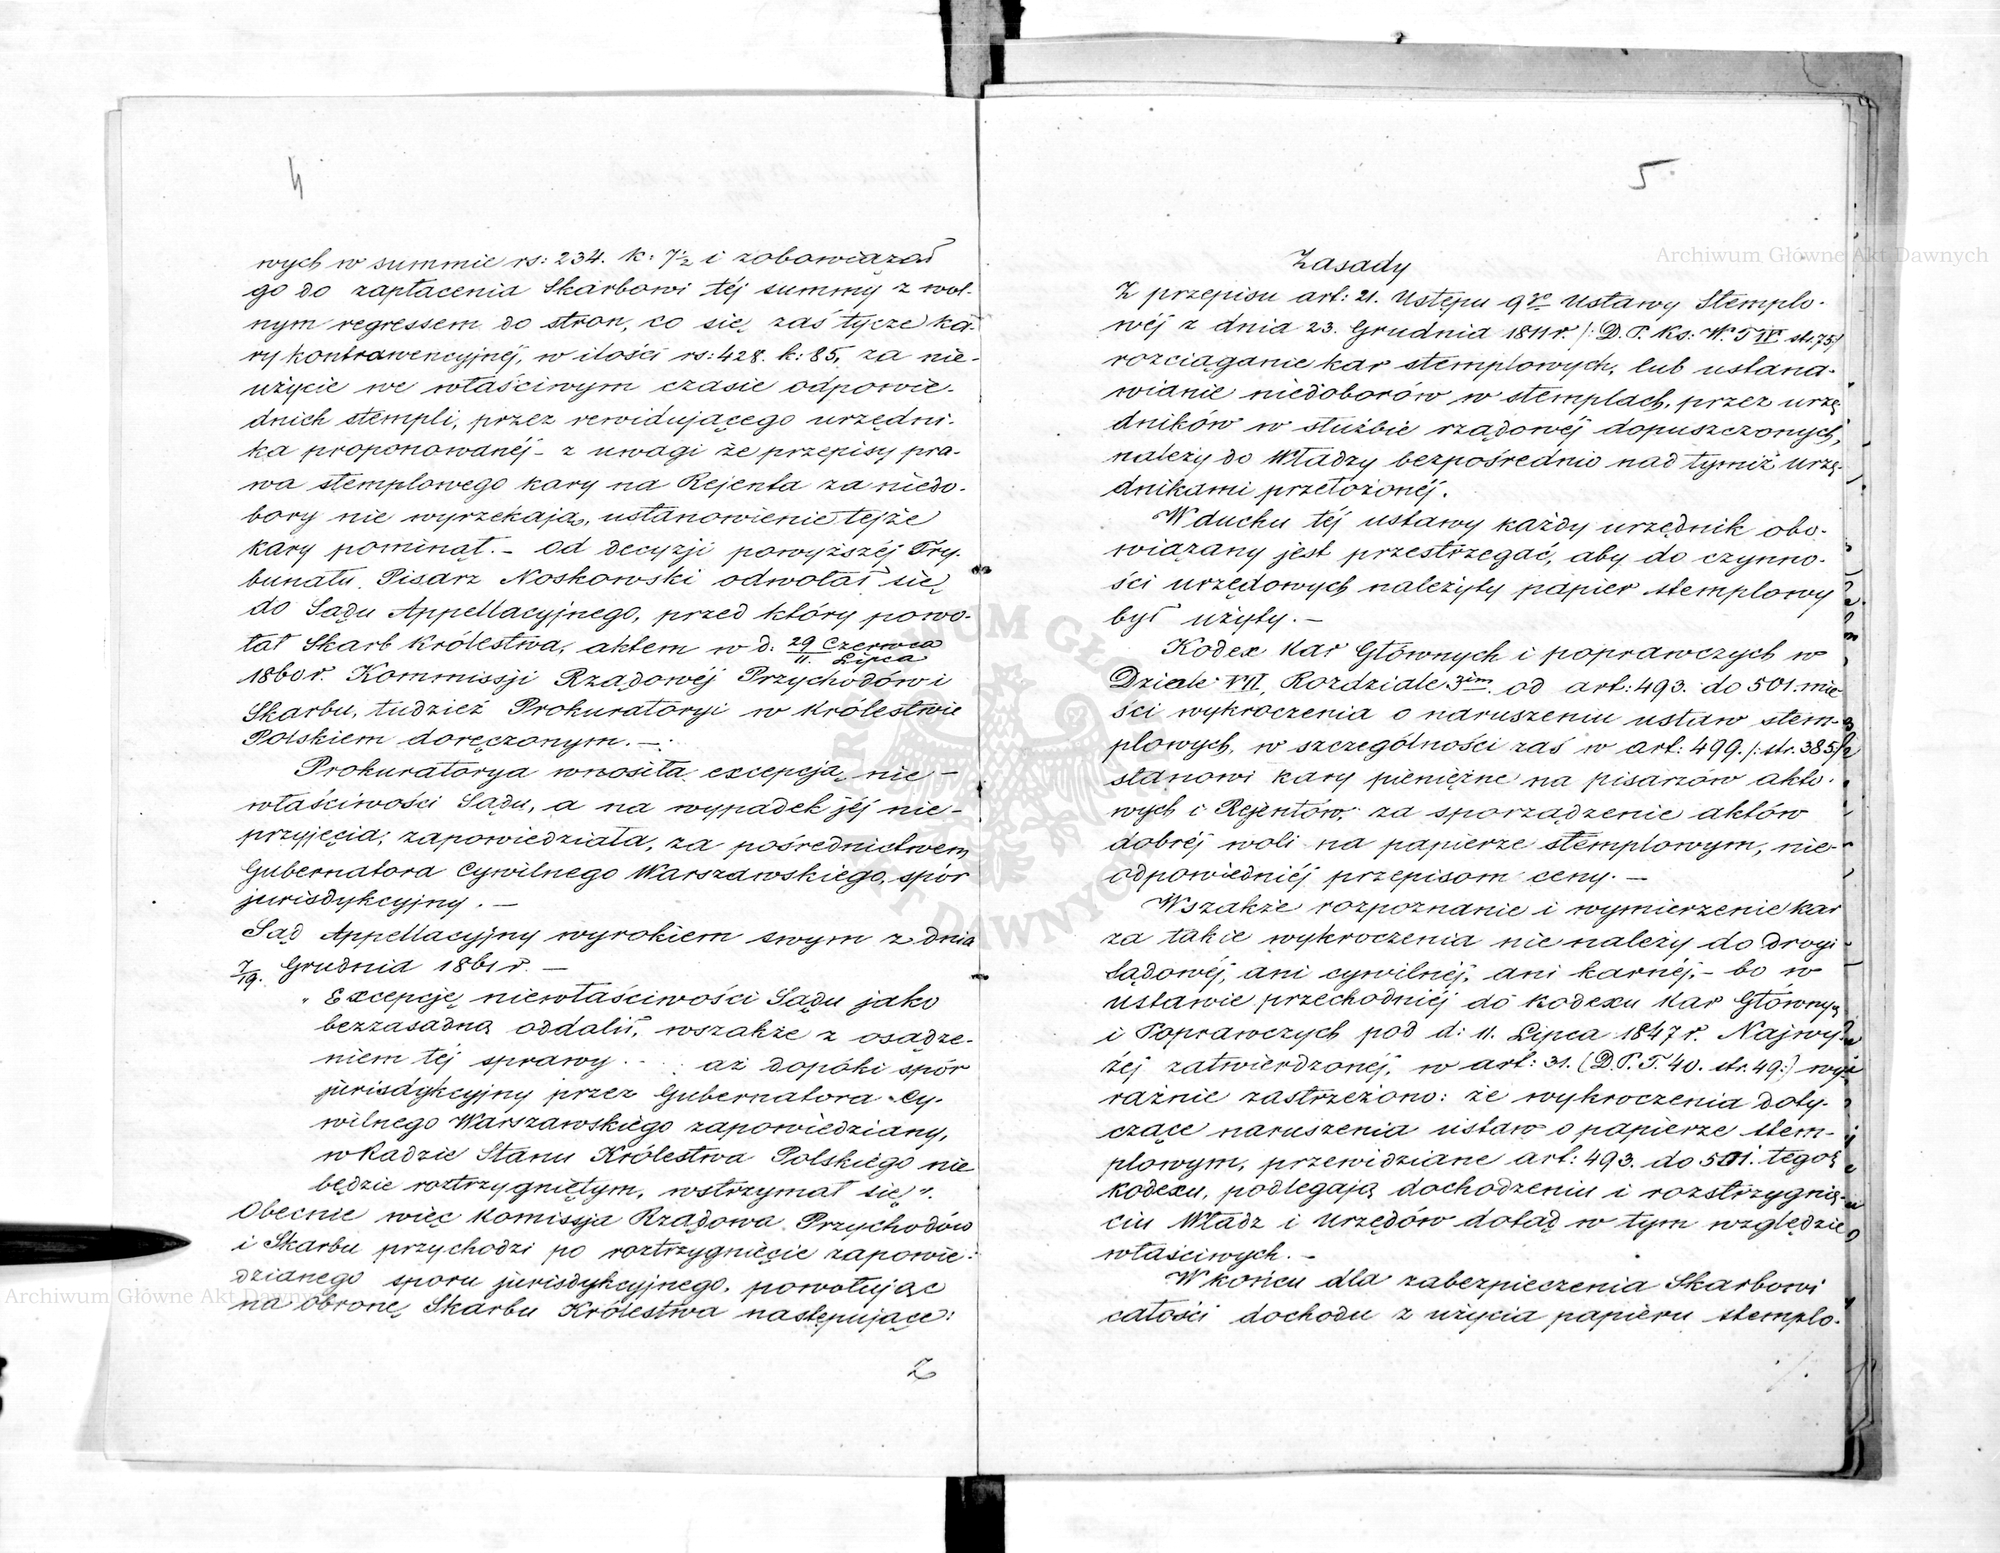 4
wych w summie rs: 234. k: 7½ i zobowiązał
go do zapłacenia Skarbowi téj summy z wol-
nym regressem do stron, co się zaś tycze ka-
ry kontrawencyjnéj, w ilości rs: 428. k: 85, za nie-
użycie we właściwym czasie odpowie-
dnich stempli, przez rewidującego urzędni-
ka proponowanéj - z uwagi że przepisy pra-
wa stemplowego kary na Rejenta za niedo-
bory nie wyrzekają, ustanowienie tejże
kary pominął. - Od decyzji powyższéj Try-
bunału Pisarz Noskowski odwołał się
do Sądu Appellacyjnego, przed który powo-
łał Skarb Królestwa, aktem w d: 29 Czerwca
11. Lipca
1860 r. Kommissji Rządowéj Przychodów i
Skarbu, tudzież Prokuratoryi w Królestwie
Polskiem doręczonym. -
Prokuratorya wnosiła excepcją nie-
właściwości Sądu, a na wypadek jéj nie-
przyjęcia; zapowiedziała, za pośrednictwem
Gubernatora Cywilnego Warszawskiego, spór
jurisdykcyjny. -
Sąd Appellacyjny wyrokiem swym z dnia
7/19. Grudnia 1861 r. -
„ Excepcję niewłaściwości Sądu jako
bezzasadną oddalił, wszakże z osądze-
niem téj sprawy . . . aż dopóki spór
jurisdykcyjny przez Gubernatora Cy-
wilnego Warszawskiego zapowiedziany,
w Radzie Stanu Królestwa Polskiego nie
będzie roztrzygniętym, wstrzymał się".
Obecnie więc Komissja Rządowa Przychodów
i Skarbu przychodzi po roztrzygnięcie zapowie-
dzianego sporu jurisdykcyjnego, powołując
na obronę Skarbu Królestwa następujące:
Z
5.
Zasady
Z przepisu art: 21. Ustępu 9go Ustawy Stemplo-
wéj z dnia 23. Grudnia 1811 r. /: D. P. Ks: W. T IV str. 75/
rozciąganie kar stemplowych, lub ustana-
wianie niedoborów w stemplach, przez urzę
dników w służbie rządowéj dopuszczonych,
należy do Władzy bezpośrednio nad tymiż urzę-
dnikami przełożonéj.
W duchu téj ustawy każdy urzędnik obo-
wiązany jest przestrzegać, aby do czynno-
ści urzędowych należyty papier stemplowy
był użyty. -
Kodex Kar Głównych i poprawczych w
Dziale VII, Rozdziale 3im. od art: 493. do 501. mie-
ści wykroczenia o naruszeniu ustaw stem-
plowych, w szczególności zaś w art: 499. /: str. 385/
stanowi kary pieniężne na pisarzów akto-
wych i Rejentów, za sporządzenie aktów
dobréj woli na papierze stemplowym, nie-
odpowiedniéj przepisom ceny. -
Wszakże rozpoznanie i wymierzenie kar
za takie wykroczenia nie należy do drogi
sądowéj, ani cywilnéj, ani karnéj, - bo w
ustawie przechodniéj do kodexu Kar Głównych
i Poprawczych pod d: 11. Lipca 1847 r. Najwy-
żéj zatwierdzonéj, w art: 31. (D. P. T. 40. str. 49:) wy-
raźnie zastrzeżono: że wykroczenia doty-
czące naruszenia ustaw o papierze stem-
plowym, przewidziane art: 493. do 501. tegoż
kodexu, podlegają dochodzeniu i rozstrzygnię-
ciu Władz i Urzędów dotąd w tym względzie
właściwych. -
W końcu dla zabezpieczenia Skarbowi
całości dochodu z użycia papieru stemplo-
Archiwum Główne Akt Dawnych
Archiwum Główne Akt Dawnych